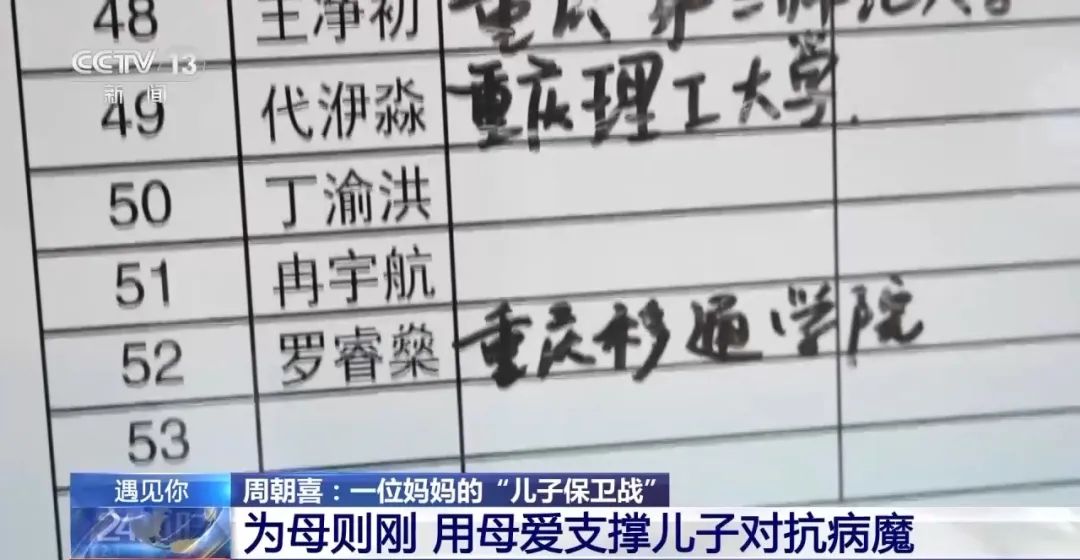 48 王净初 重庆第二师范大学
CCTV 13
新闻
49 代洢淼 重庆理工大学.
50 丁渝洪
51 冉宇航
52 罗睿燊 重庆移通学院
53
遇见你
周朝喜：一位妈妈的“儿子保卫战”
24
为母则刚 用母爱支撑儿子对抗病魔